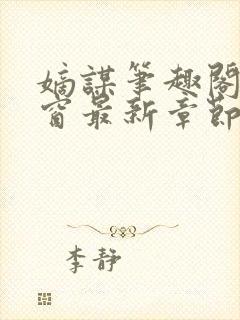 嫡謀筆趣閣
窗最新章節
李靜